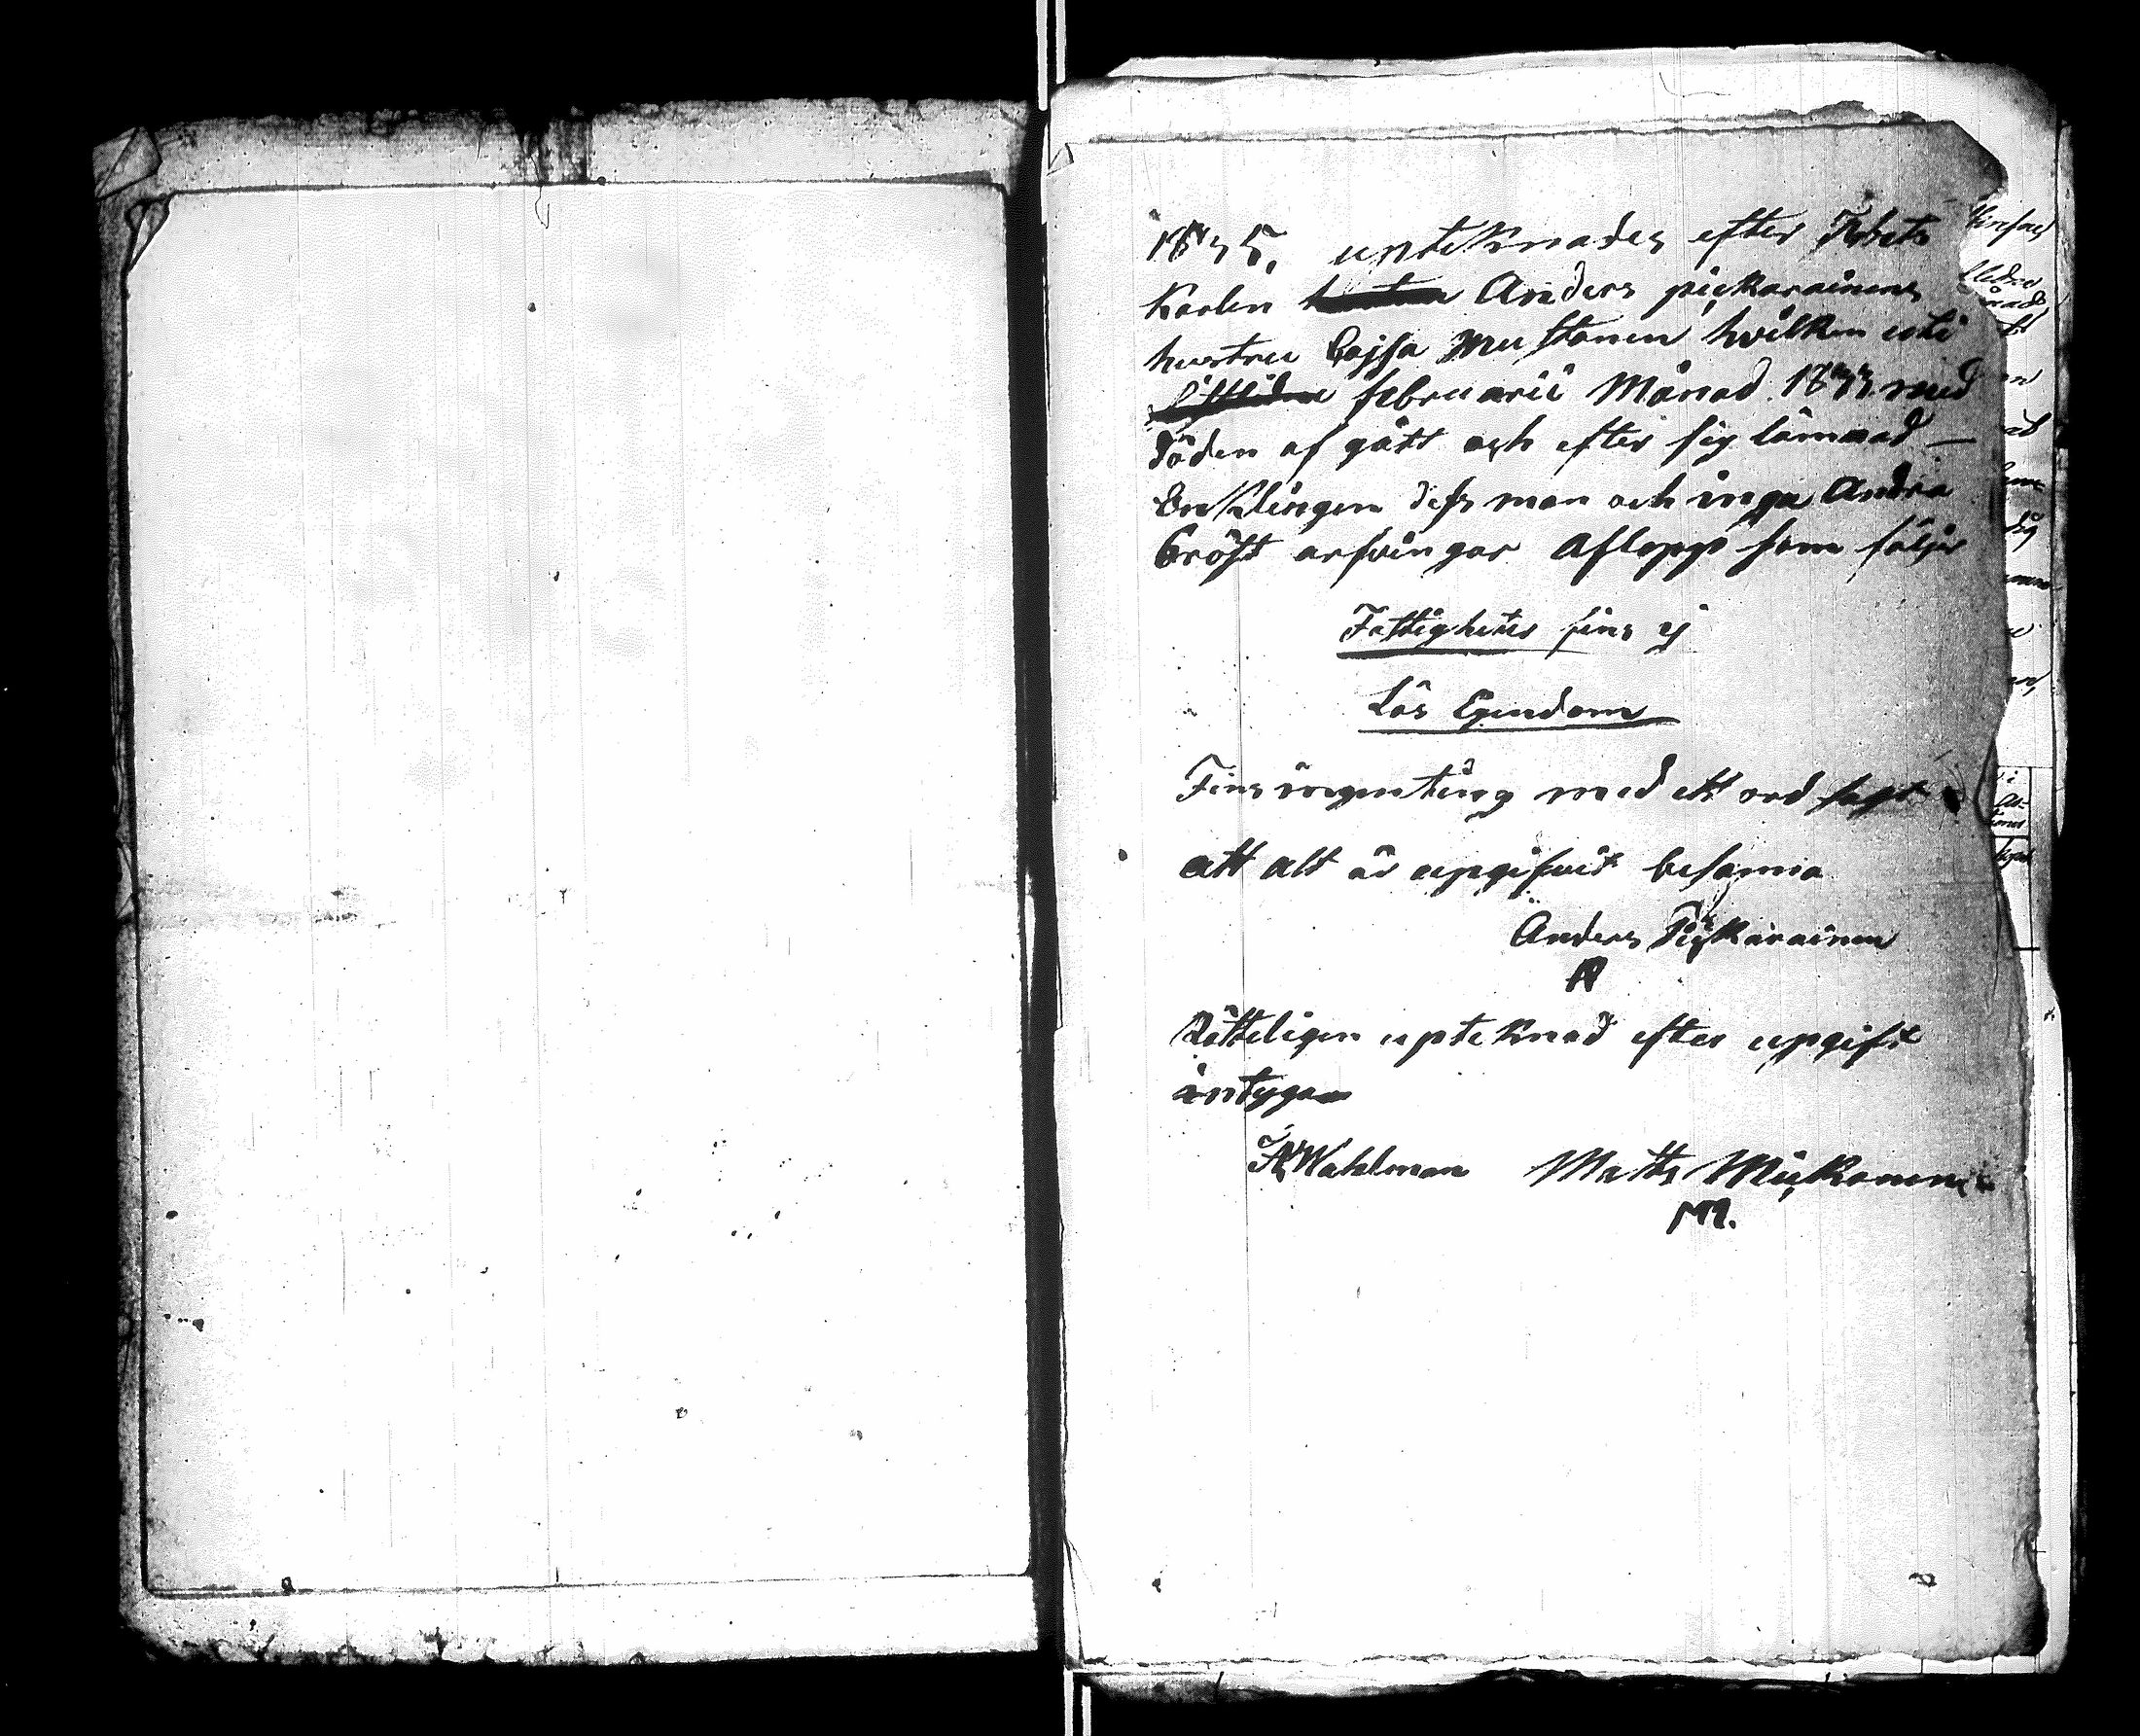 1835. upteknades efter Torpets
Karlen Anders pickarainens
hustru Cajsa Mustonen hvilken uti
februarii Månad 1833 med
döden af gått och efter sig lämnad —
Enklingen dess man och inga Andra
Bröst arfvingar Aflopp som följer
Fattigheter fins ej
Lös Egendom
Fins ingen ting med ett ord sagt
att alt är upgifvit besanna
Anders Pickarainen
Rätteligen upteknad efter upgift
intygar
Wahlman Matts Mickonen
M.